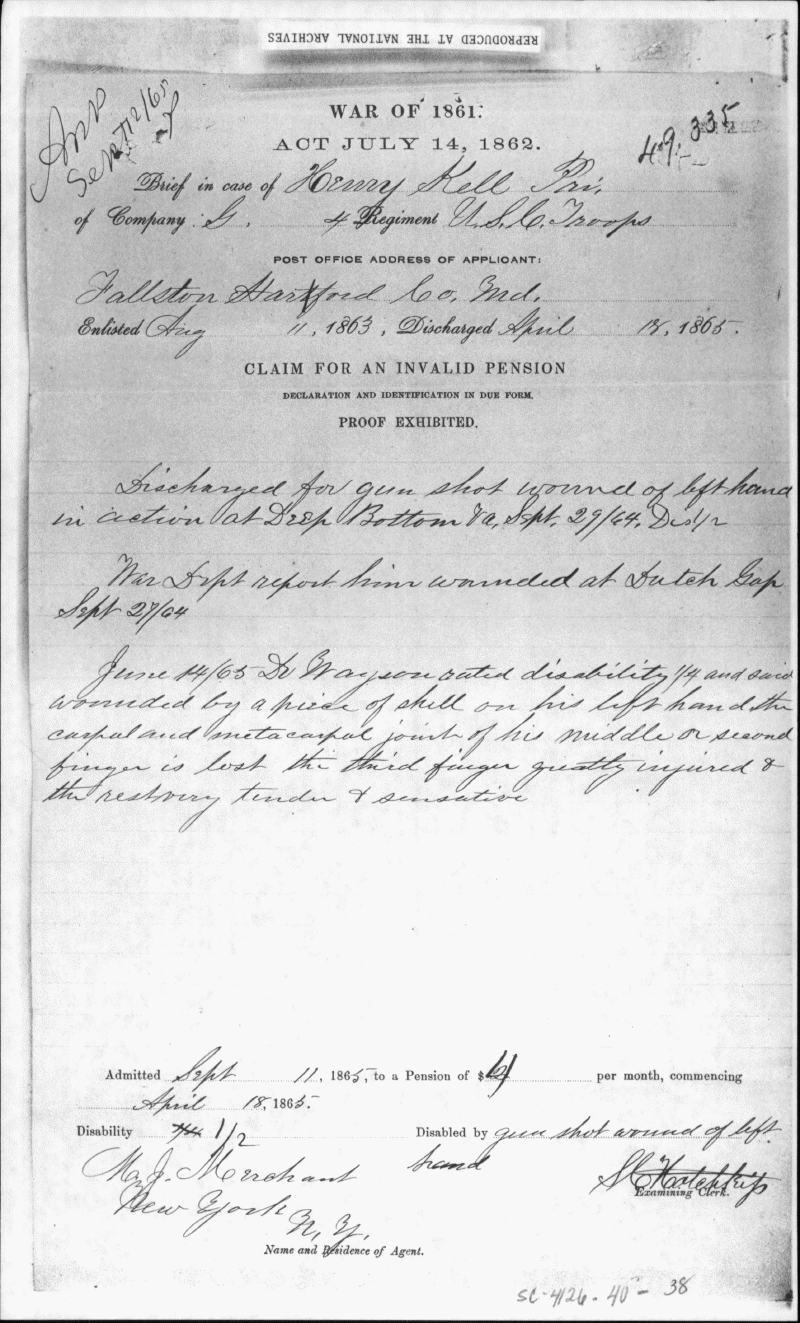 REPRODUCED AT THE NATIONAL ARCHIVES
App
Sept 12/65
WAR OF 1861.
ACT JULY 14, 1862.
49,335
Brief in case of Henry Kell Pri.
of Company G. 4 Regiment U.S.C. Troops
POST OFFICE ADDRESS OF APPLICANT:
Fallston Hartford Co. Md.
Enlisted Aug 11, 1863, Discharged April 18, 1865.
CLAIM FOR AN INVALID PENSION
DECLARATION AND IDENTIFICATION IN DUE FORM.
PROOF EXHIBITED.
Discharged for gun shot wound of left hand
in action at Deep Bottom Va, Sept. 29/64. Dis 1/2
War Dept report him wounded at Dutch Gap
Sept 29/64
June 14/65 Dr Wayson rated disability 1/4 and said
wounded by a piece of shell on his left hand the
carpal and metacarpal joint of his middle or second
finger is lost the third finger greatly injured &
the rest very tender & sensative
Admitted Sept 11, 1865, to a Pension of $4 per month, commencing
April 18, 1865.
Disability 1/2 Disabled by gun shot wound of left
hand
M. J. Merchant
New York
N. Y.
S C Hotchkiss
Examining Clerk.
Name and Residence of Agent.
SC-4126-40-38